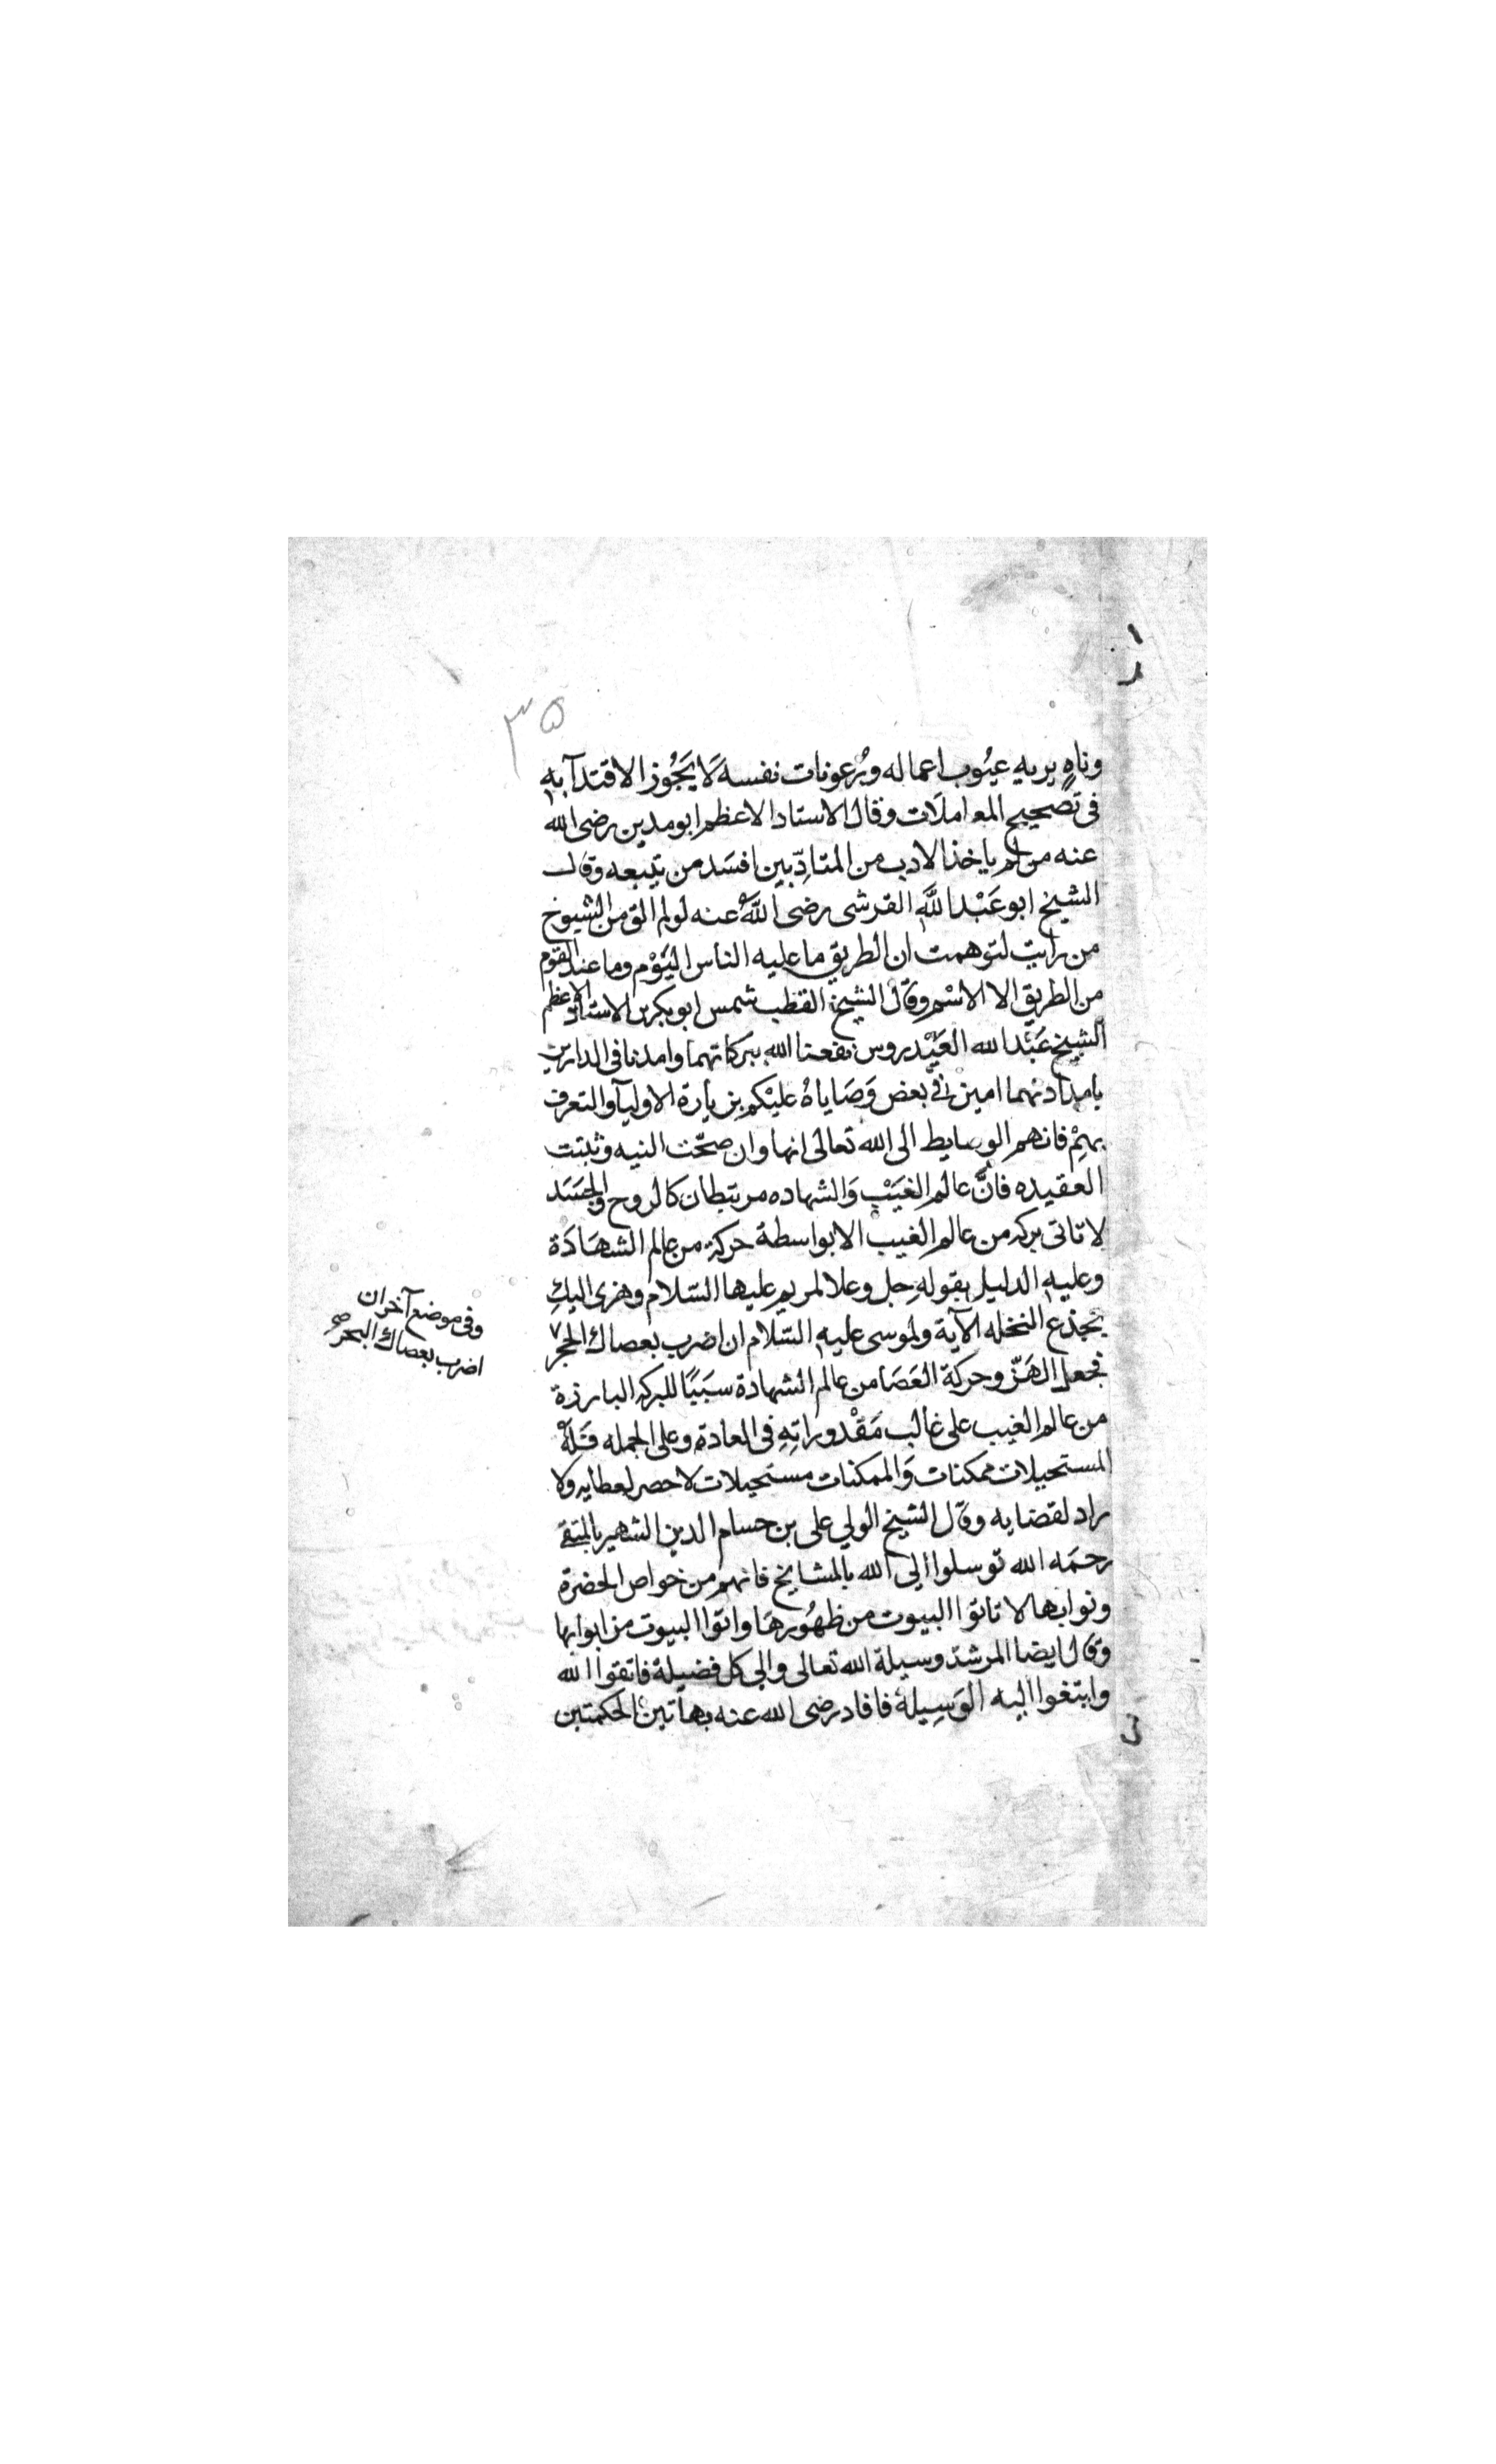 ٣٥
وناهٍ يريه عيُوب اعماله ورُعونات نفسه لَا يَجُوز الاقتدآ به
فى تصحيح المعاملَات وقال الاستاد الاعظم ابو مدين رضى الله
عنه من لم ياخذ الادب من المتادِّبين افسَد من يتبعه وقال
الشيخ ابو عَبْد اللَّه القرشى رضى اللَّه عنه لو لم الق من الشيوخ
من رايت لتوهمت ان الطريق ما عليه الناس اليَوْم وما عند القوم
من الطريق الا الاسْم وقال الشيخ القطب شمس ابو بكر بن الاستاذ الاعظم
الشيخ عَبْد الله العَيْدروس نفعنا الله ببركاتهما وامدنا فى الدارين
بامدادهما امين فى بعض وَصَاياهُ عليْكم بزيارة الاوليآ والتعرف
بهمْ فانهم الوسايط الى الله تعالى انها وان صحّت النيه وثبتت
العقيده فانَّ عالم الغيَبْ وَالشهاده مرتبطان كالروح والجسَد
لا تاتى بركه من عالم الغيب الا بواسطة حركة من عالم الشهَادَة
وعليه الدليل بقولهِ جل وعلا لمريم عليها السّلام وهزى اليكِ
بجذع النخله الآية ولموسى عليه السّلام ان اضرب بعصاك الحجر ٧
وفى موضع آخر ان
اضرب بعصاك البحر صح
فجعل الهَزّ وحركة العَصَا من عالم الشهادة سبَبًا للبركه البارزة
من عالم الغيب على غالب مَقْدوراتِهِ فى العادة وعلى الجمله فَلَهُ
المستحيلات ممكنات وَالممكنات مستحيلات لا حصر لعطايه ولا
راد لقضايه وقال الشيخ الولي على بن حسام الدين الشهير بالمتقى
رحمَه الله توسلوا الى الله بالمشايخ فانهم من خواص الحضرة
ونوابها لا تاتوا البيوت من ظهُورهَا واتوا البيوت من ابوابها
وقال ايضا المرشد وسيلة الله تعالى والى كل فضيلة فاتقوا الله
وابتغوا اليه الوَسِيلة فافاد رضى الله عنه بهاتين الحكمتين